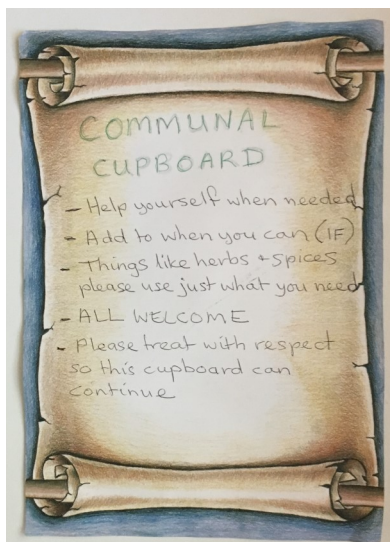 COMMUNAL
CUPBOARD
- Help yourself when needed
- Add to when you can (IF)
- Things like herbs + spices
please use just what you need
- ALL WELCOME
- Please treat with respect
so this cupboard can
continue